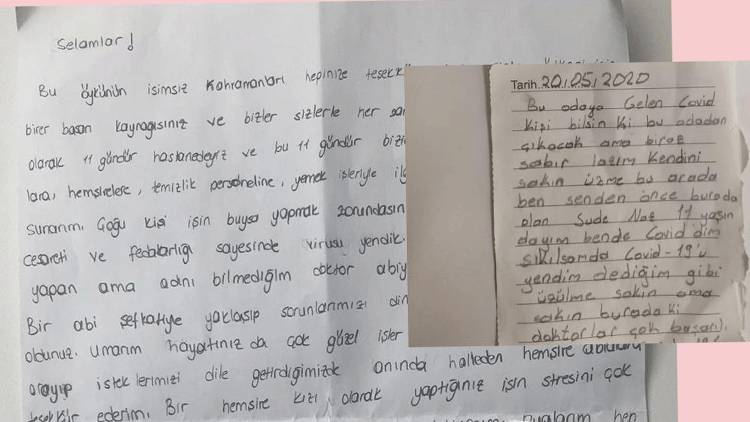 Selamlar!
Bu öykünün isimsiz kahramanları hepinize
birer başarı kaynağısınız ve bizler sizlerle her
olarak 11 gündür hastanedeyiz ve bu 11 gündür
lara, hemşirelere, temizlik personeline, yemek işleriyle
sunarım. Çoğu kişi işin buysa yapmak zorundasın
cesareti ve fedakarlığı sayesinde virüsü yendik.
yapan ama adını bilmediğim doktor
Bir abi şefkatiyle yaklaşıp sorunlarımızı
oldunuz. Umarım hayatınızda çok güzel işler
arayıp isteklerimizi dile getirdiğimizde anında halleden hemşire
teşekkür ederim. Bir hemşire kızı olarak yaptığınız işin stresini çok
Tarih 20/05/2020
Bu odaya Gelen Covid
kişi bilsin ki bu odadan
çıkacak ama biraz
sabır lazım kendini
sakın üzme bu arada
ben senden önce burada
olan Sude Naz 11 yaşın
dayım bende Covid'dim
sıkılsamda Covid-19'u
yendim dediğim gibi
üzülme sakın ama
sakın burada ki
doktorlar çok başarı